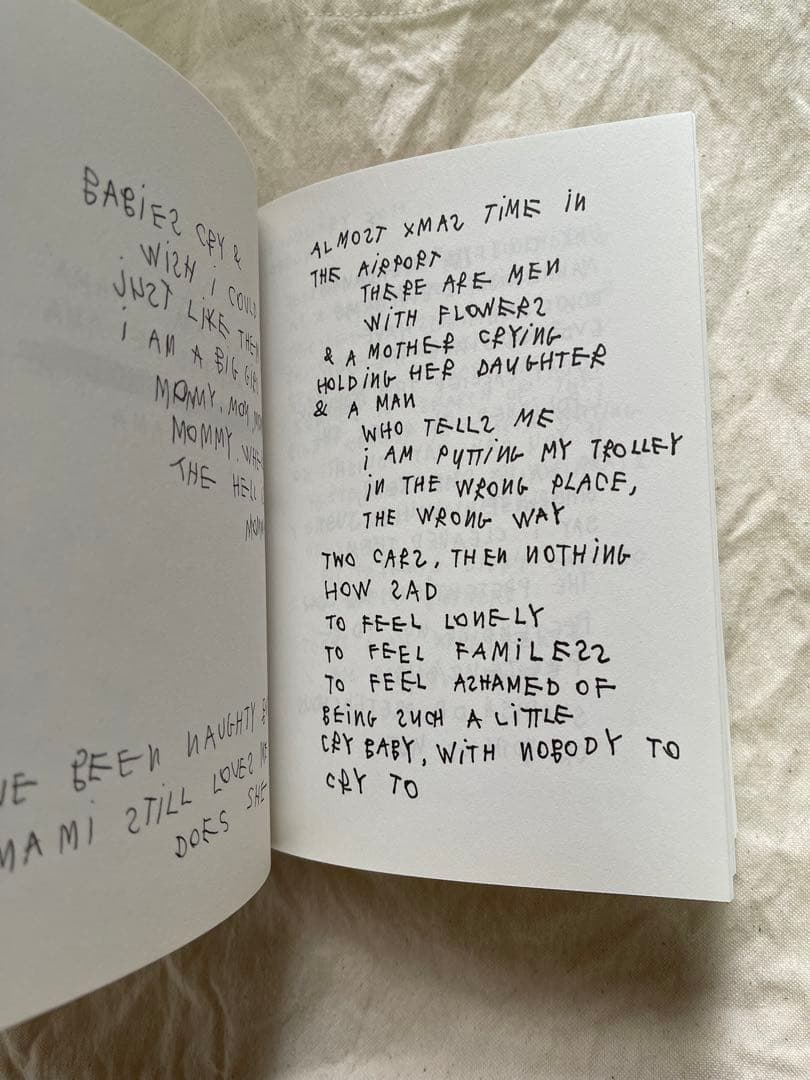 BABIES CRY &
WISH I COULD
JUST LIKE THEM
I AM A BIG
MOMMY, MOM,
MOMMY,
THE HELL
BEEN NAUGHTY
MAMI STILL LOVES ME
DOES SHE
ALMOST XMAS TIME IN
THE AIRPORT
THERE ARE MEN
WITH FLOWERS
& A MOTHER CRYING
HOLDING HER DAUGHTER
& A MAN
WHO TELLS ME
i AM PUTTING MY TROLLEY
iN THE WRONG PLACE,
THE WRONG WAY
TWO CARS, THEN NOTHING
HOW SAD
TO FEEL LONELY
TO FEEL FAMILESS
TO FEEL ASHAMED OF
BEING SUCH A LITTLE
CRY BABY, WITH NOBODY TO
CRY TO